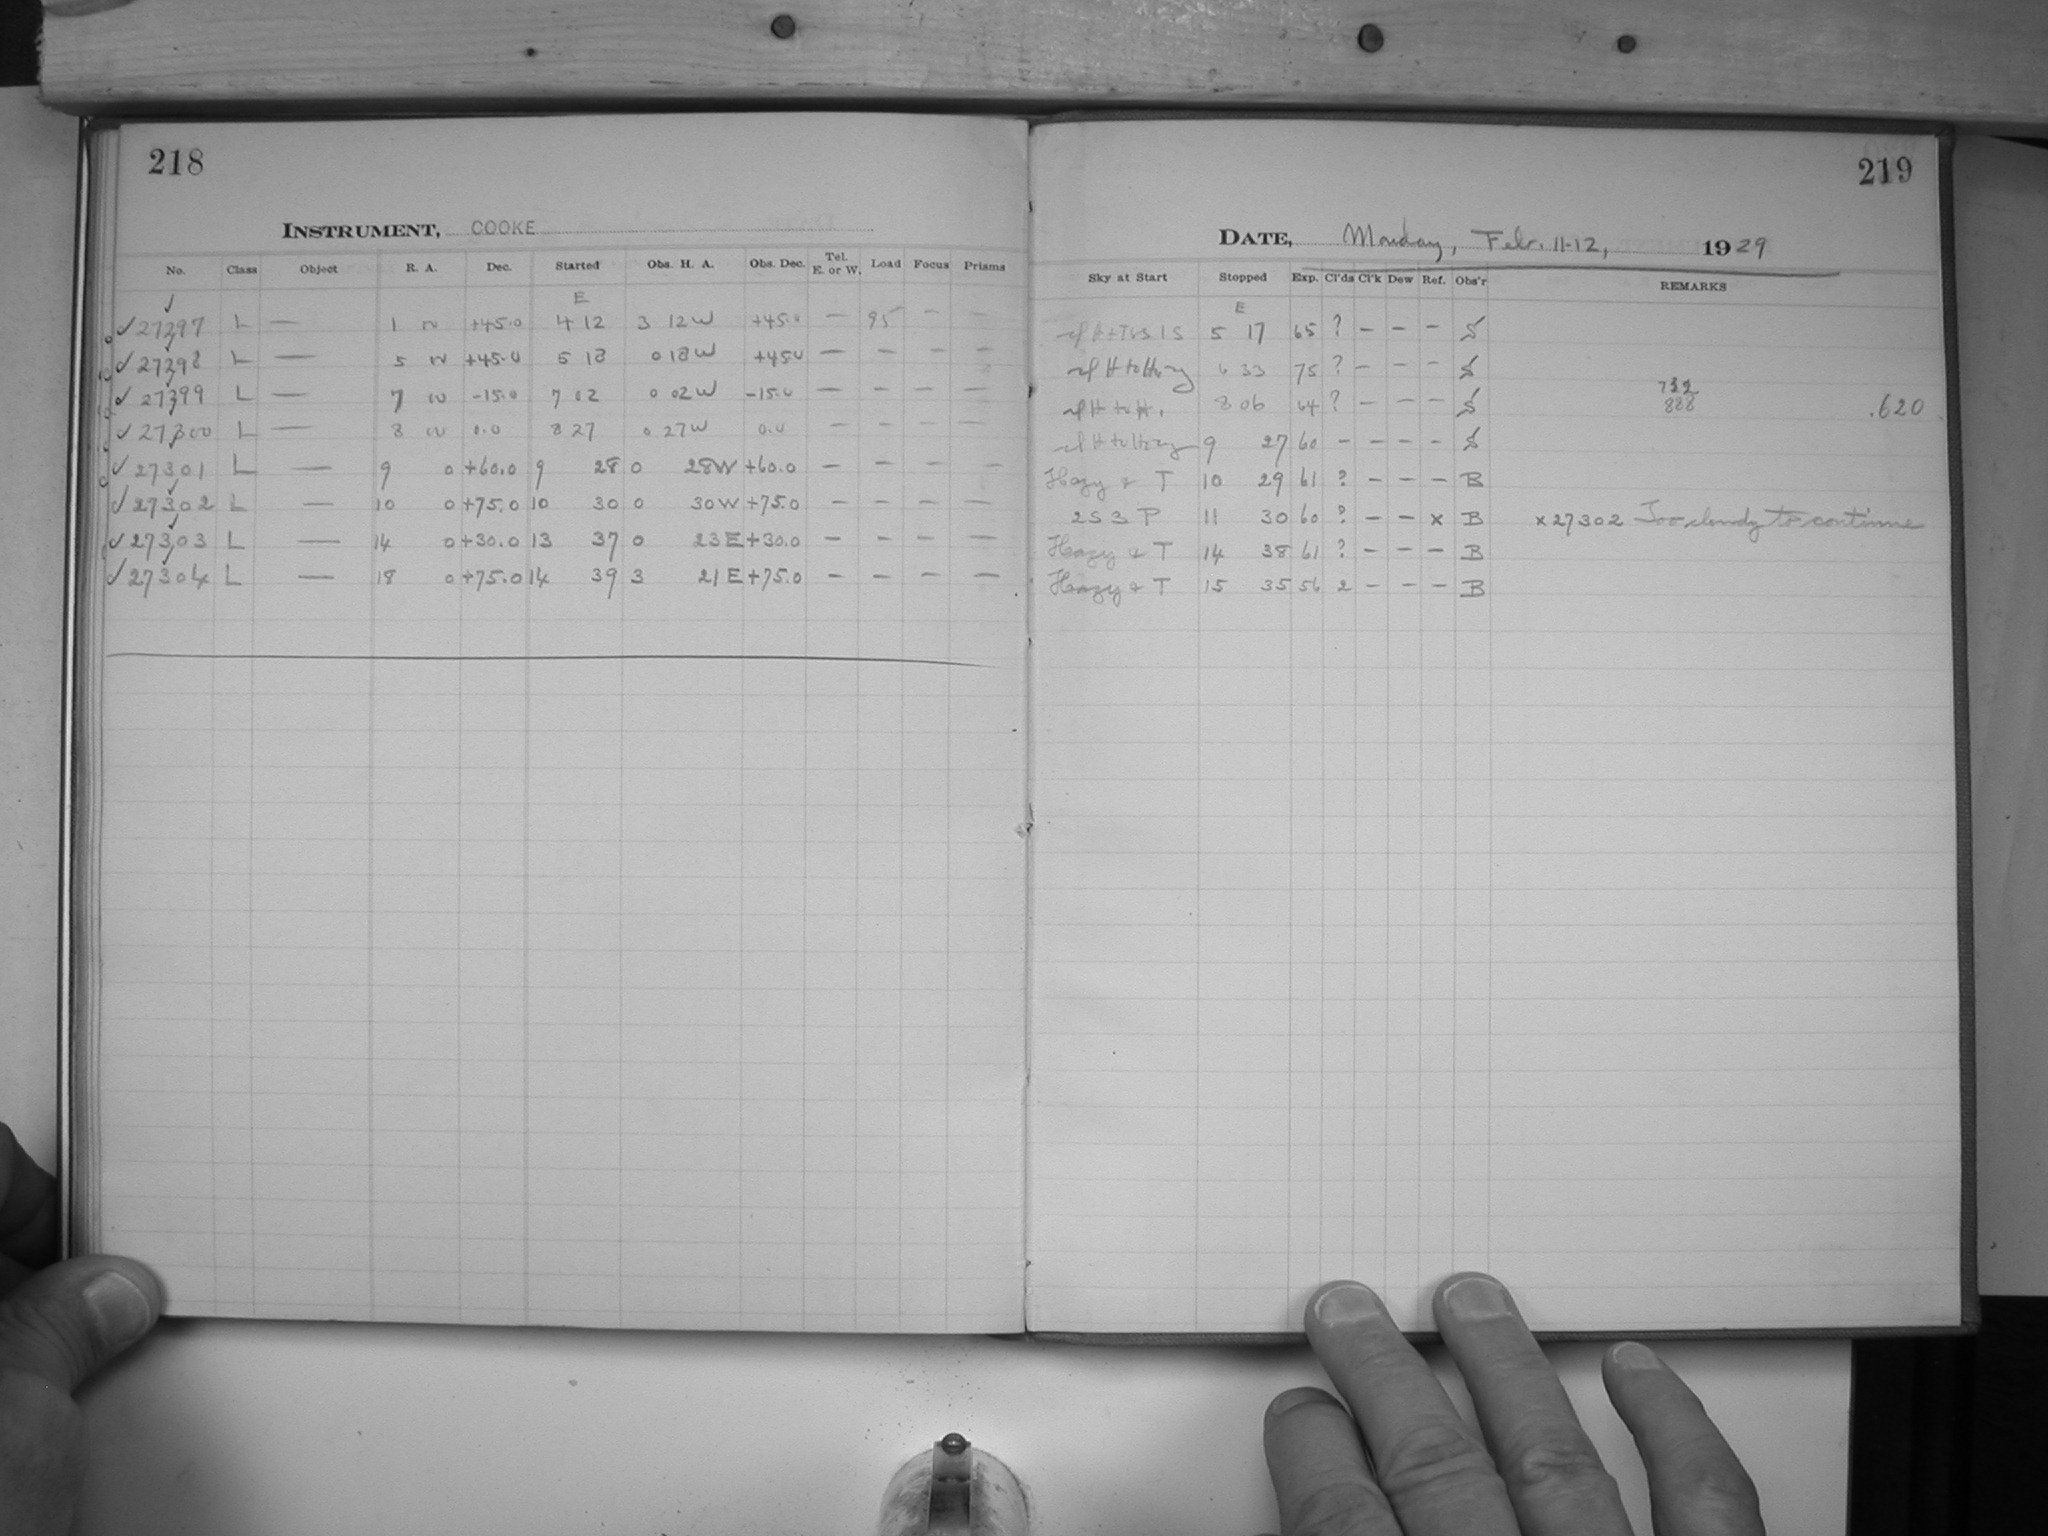 218
INSTRUMENT, COOKE
No. Class Object R. A. Dec. Started Obs. H. A. Obs. Dec. Tel. E. or W. Load Focus Prisms
E
✓27297 L — 1 +45.0 4 12 3 12W +45.0 — 95 — —
✓27298 L — 5 +45.0 5 18 0 18W +450 — — — —
✓27299 L — 7 -15.0 7 02 0 02W -15.0 — — — —
✓27300 L — 8 0.0 8 27 0 27W 0.0 — — — —
✓27301 L — 9 0 +60.0 9 28 0 28W +60.0 — — — —
✓27302 L — 10 0 +75.0 10 30 0 30W +75.0 — — — —
✓27303 L — 14 0 +30.0 13 37 0 23E +30.0 — — — —
✓27304 L — 18 0 +75.0 14 39 3 21E +75.0 — — — —
219
DATE, Monday, Febr. 11-12, 1929
Sky at Start Stopped Exp. Cl'ds Cl'k Dew Ref. Obs'r REMARKS
E
5 17 65 ? — — — S
6 33 75 ? — — — S
8 06 64 ? — — — S 888 .620
9 27 60 — — — — S
Hazy & T 10 29 61 ? — — — B
2 S 3 P 11 30 60 ? — — x B x27302 Too cloudy to continue
Hazy & T 14 38 61 ? — — — B
Hazy & T 15 35 56 2 — — — B